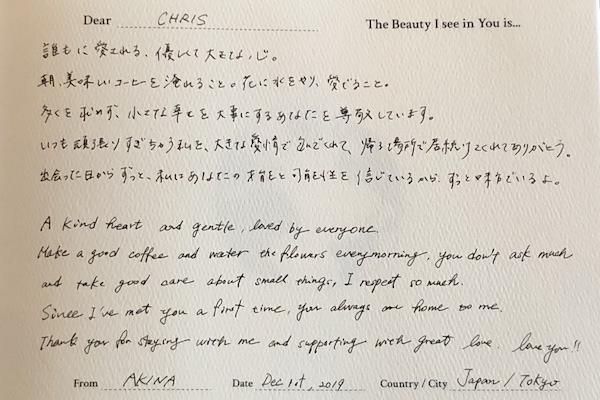 Dear CHRIS The Beauty I see in You is...
誰もに愛される、優しくて大きな心。
朝、美味しいコーヒーを淹れること。花に水をやり、愛でること。
多くを求めず、小さな幸せを大事にするあなたを尊敬しています。
いつも頑張りすぎちゃう私を、大きな愛情で包んでくれて、帰る場所で居続けてくれてありがとう。
出会った日からずっと、私はあなたの才能と可能性を信じているから、ずっと味方でいるよ。
A kind heart and gentle, loved by everyone.
Make a good coffee and water the flowers everymorning, you don't ask much
and take good care about small things, I respect so much.
Since I've met you a first time, you always are home to me.
Thank you for staying with me and supporting with great love. love you!!
From AKINA Date Dec 1st, 2019 Country / City Japan / Tokyo